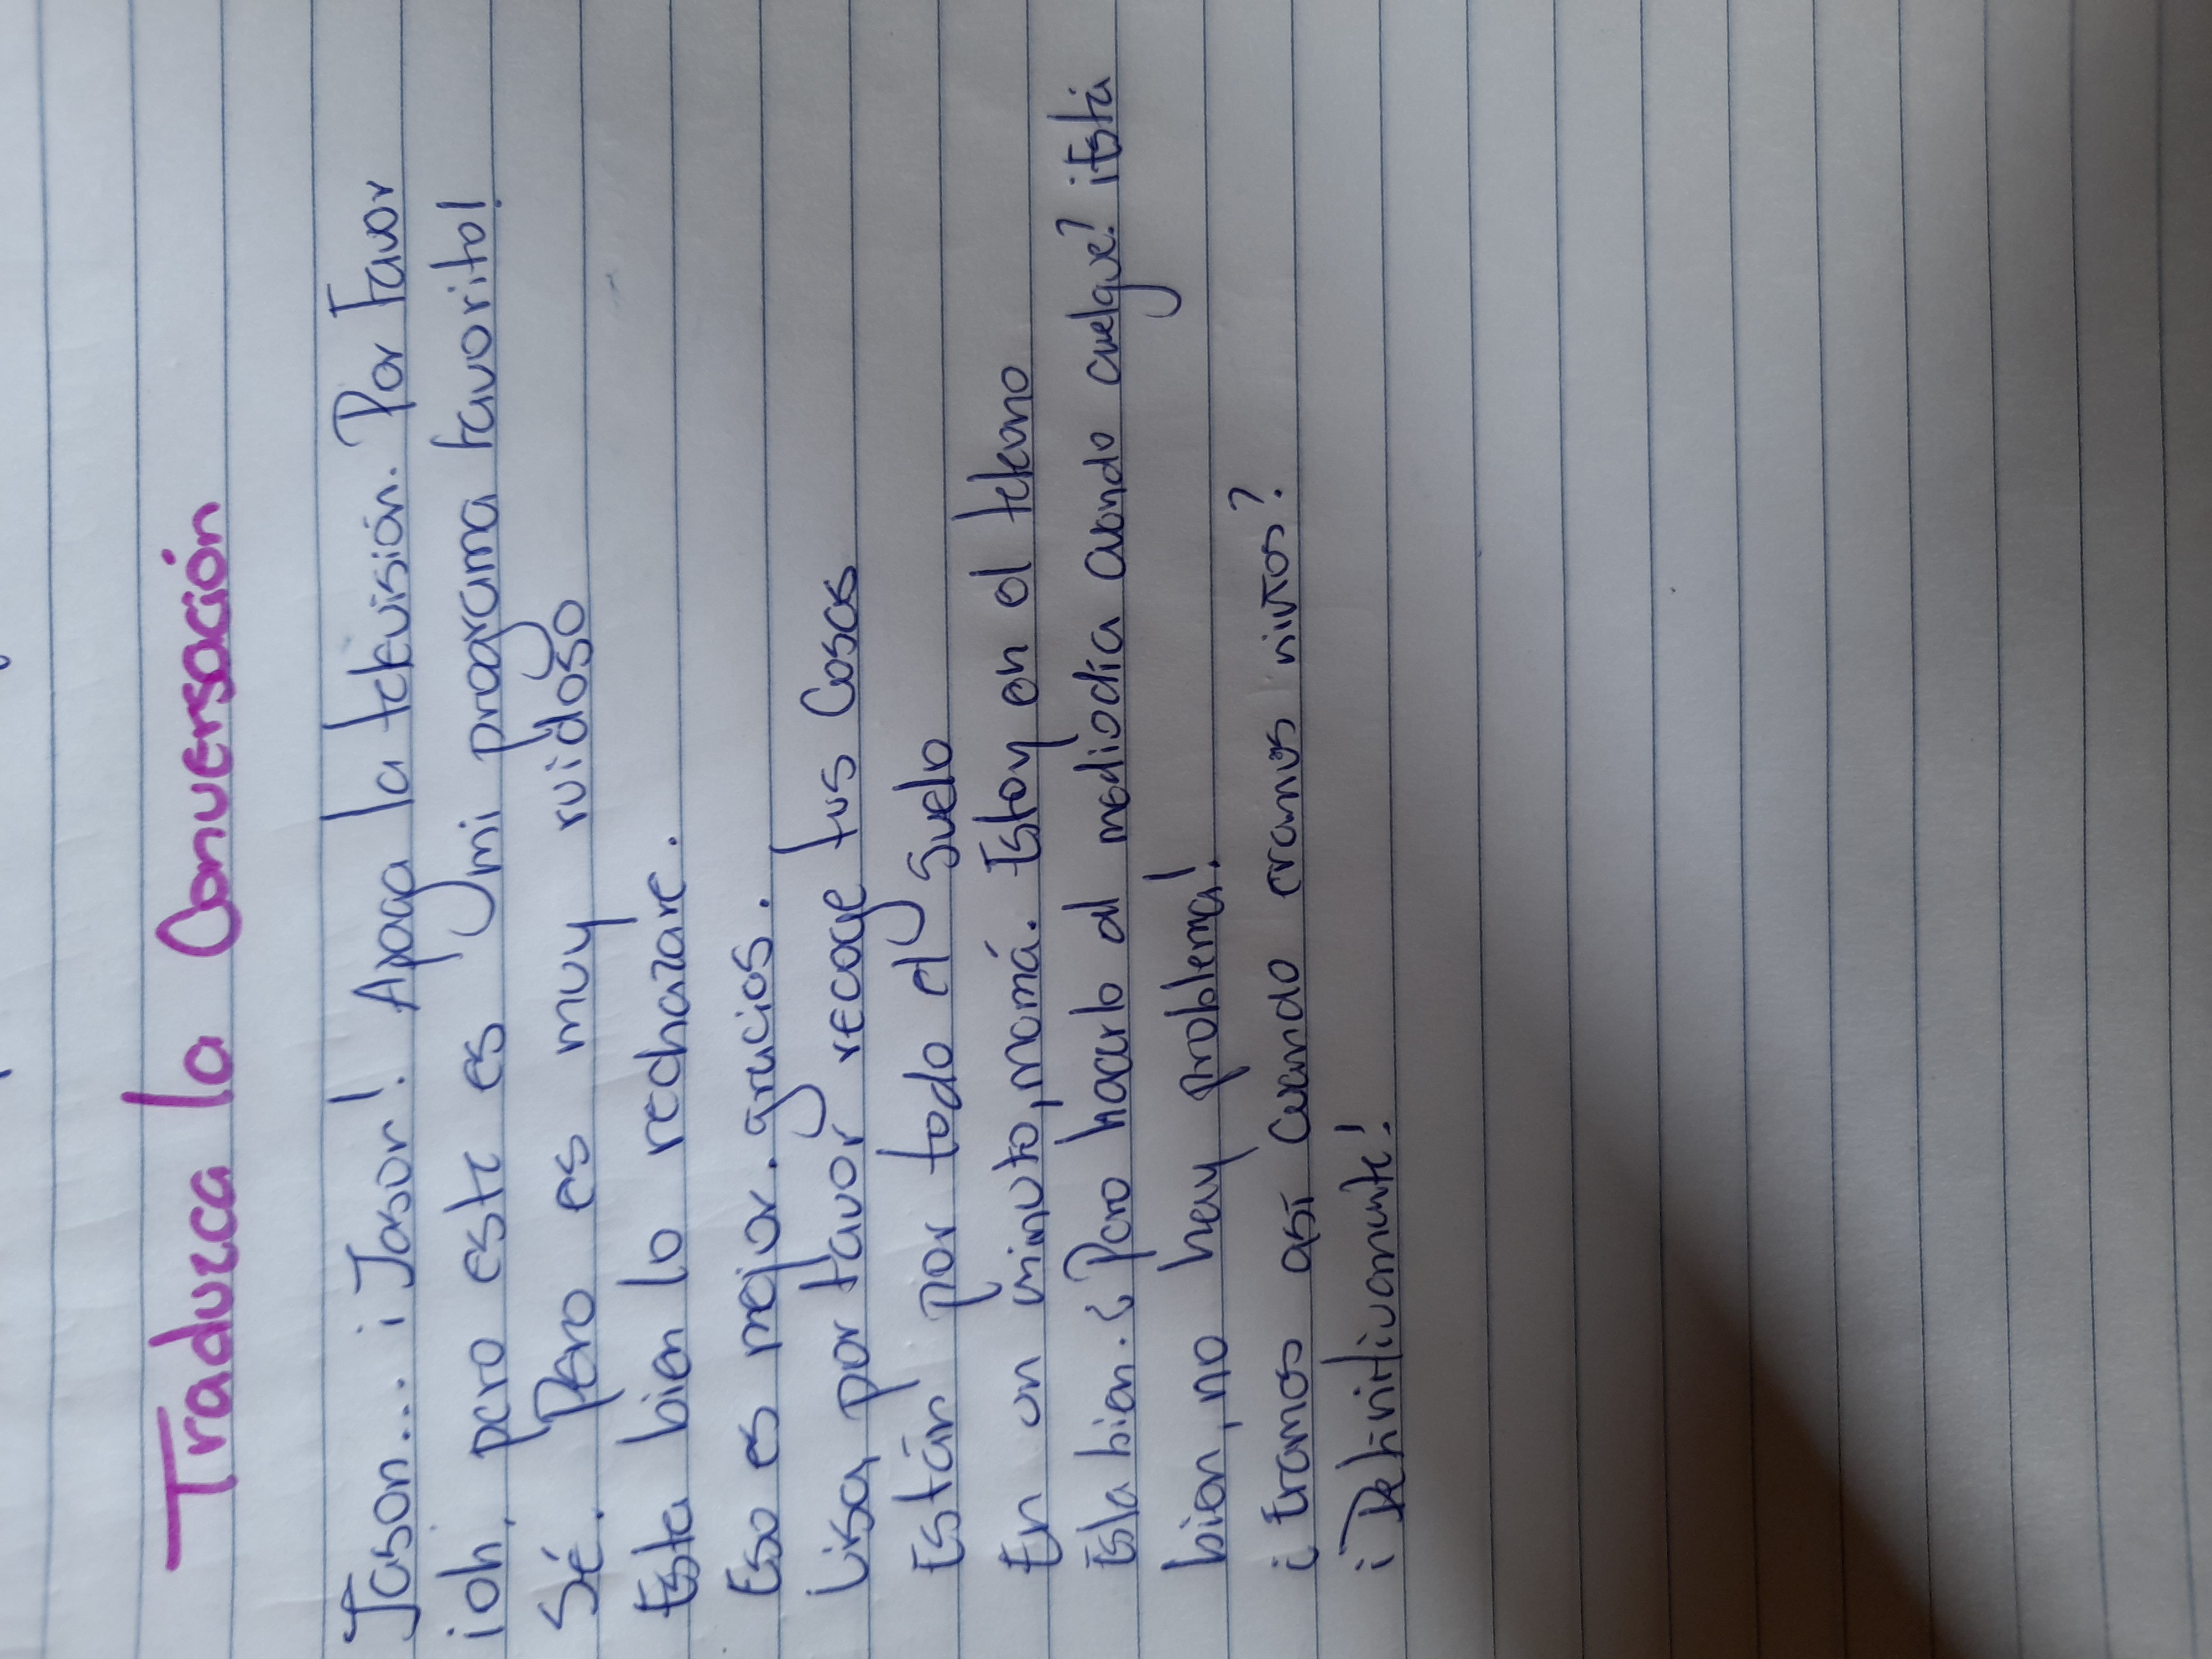 Traduzca la Conversación
Jason... ¡Jason!. Apaga la televisión. Por Favor
¡oh, pero este es mi programa favorito!
Sé. Pero es muy ruidoso
Esta bien lo rechazare.
Eso es mejor. gracias.
Lisa, por favor recoge tus Cosas
Están por todo el suelo
En un minuto, mamá. Estoy en el telefono
Esta bien. ¿Pero hacerlo al mediodía cuando cuelgue? ¡Está
bien, no hay problema!
¿Eramos así cuando eramos niños?
¡Definitivamente!